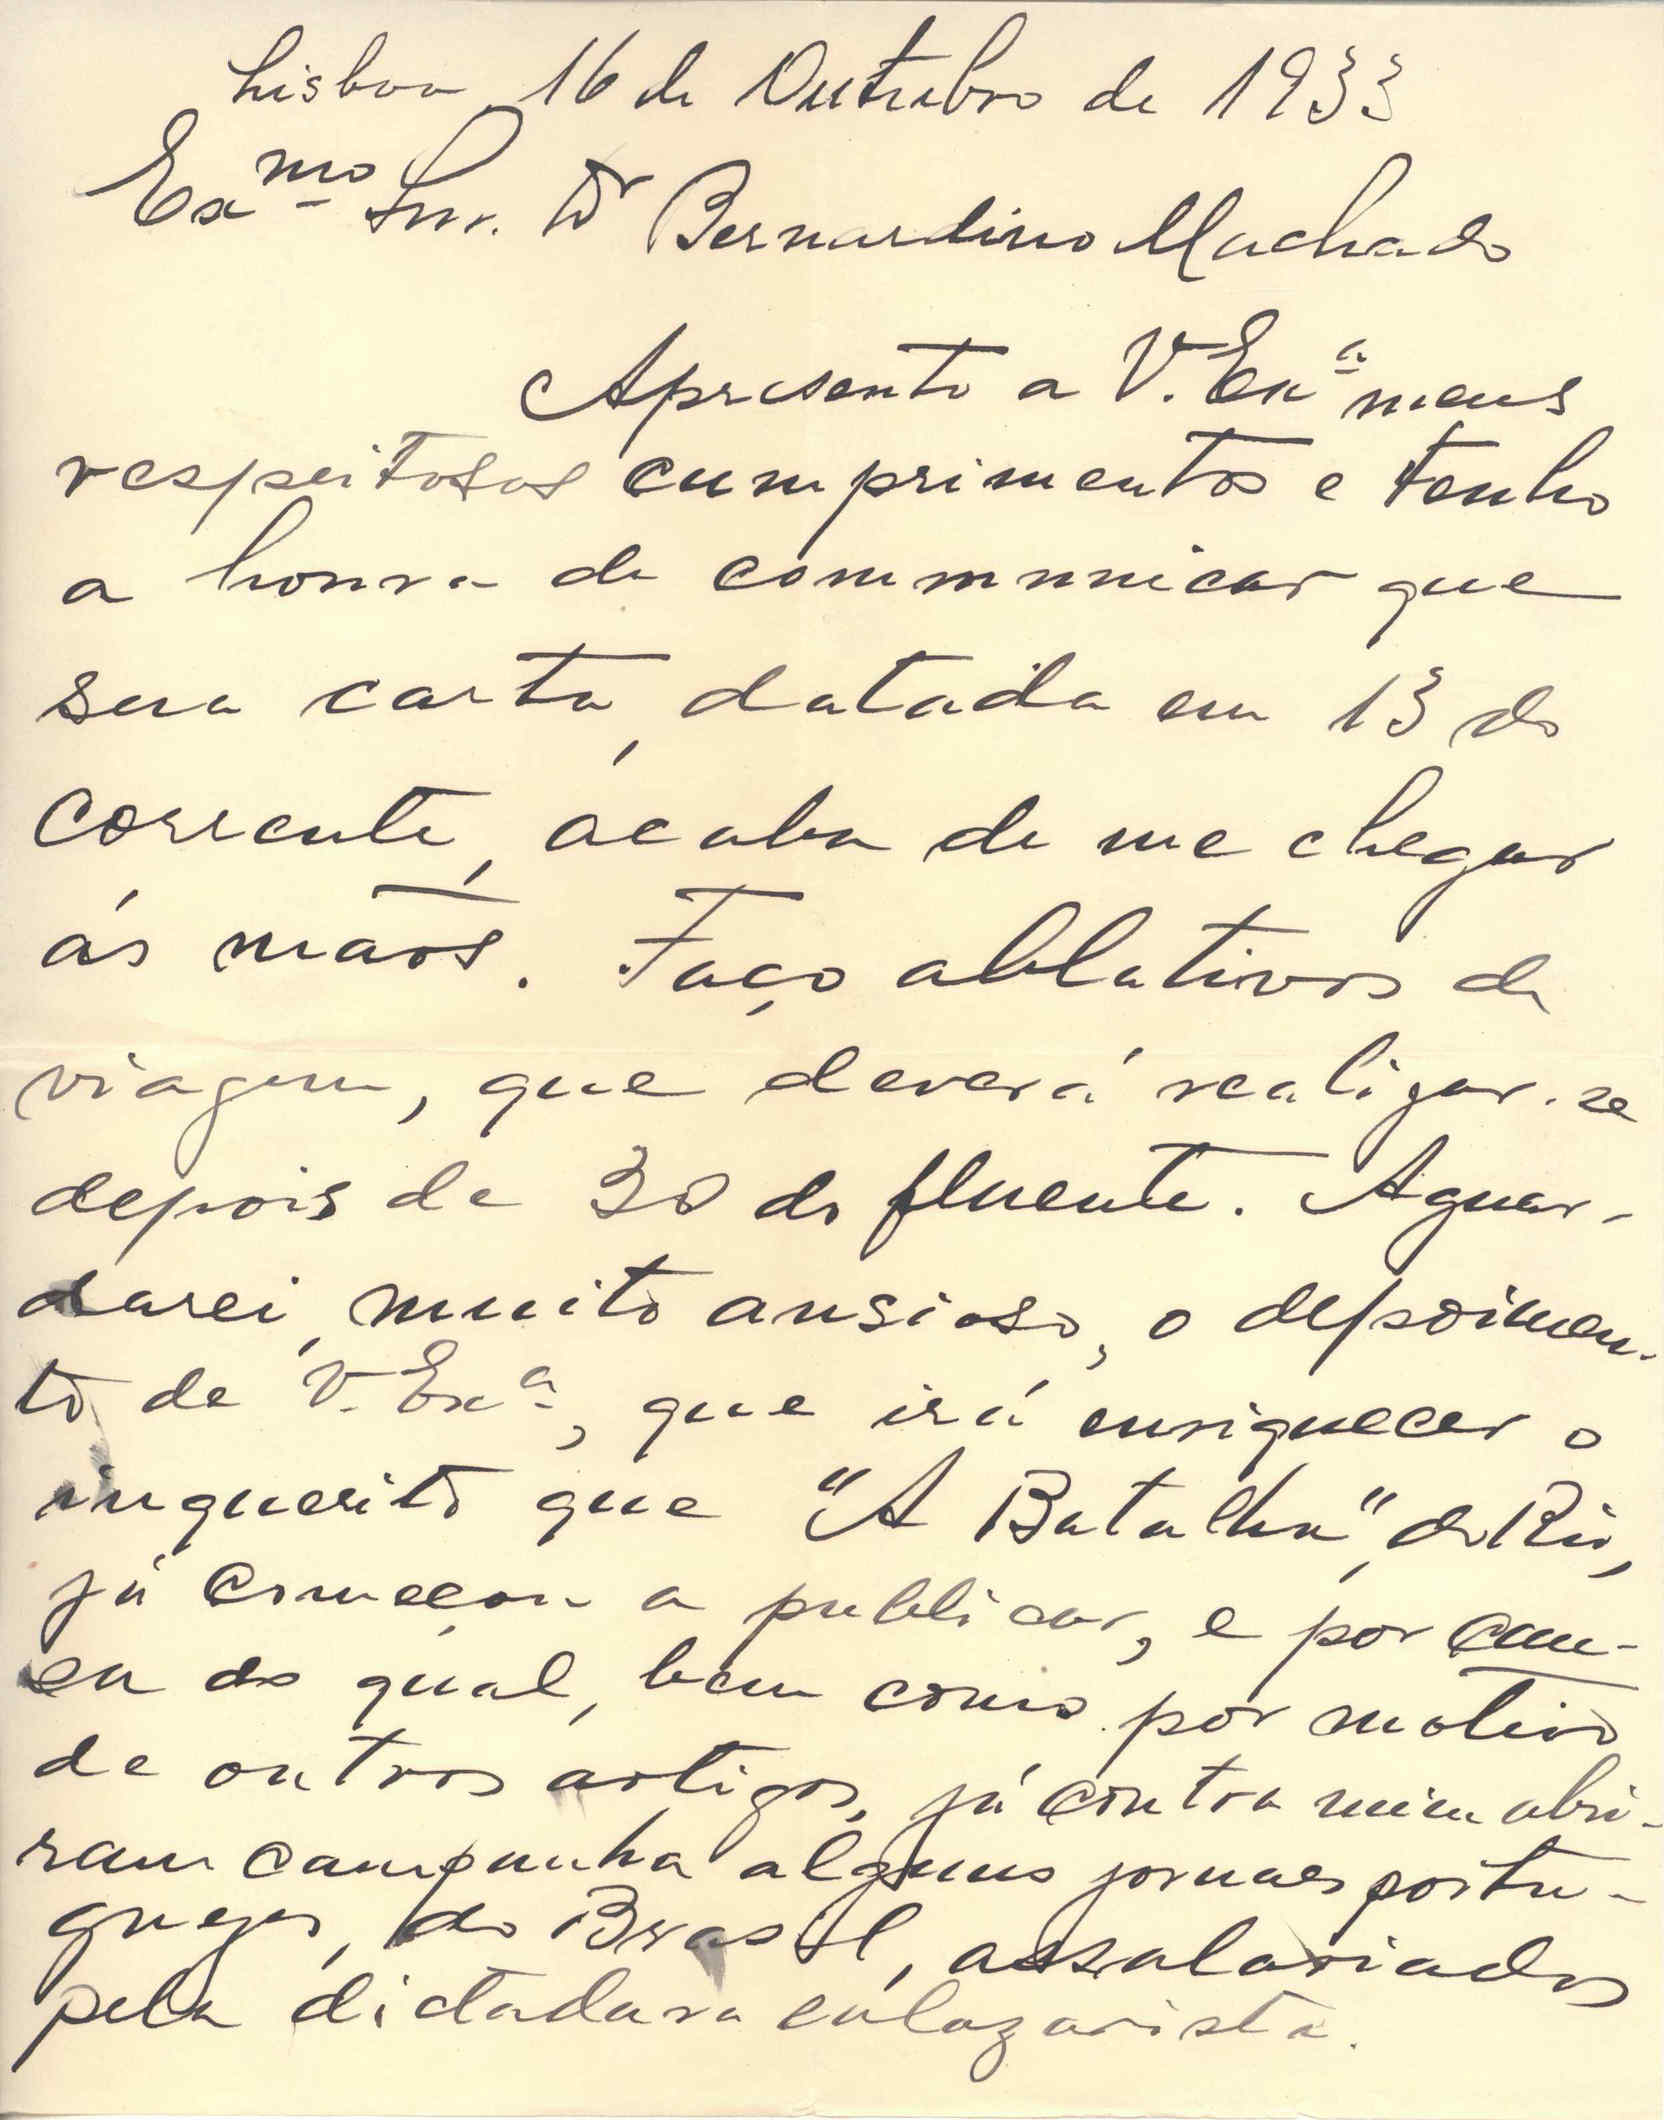 Lisboa, 16 de Outubro de 1933
Exmo Snr. Dr Bernardino Machado
Apresento a V. Exa meus
respeitosos cumprimentos e tenho
a honra de communicar que
sua carta, datada em 13 do
corrente, acaba de me chegar
ás mãos. Faço ablativos de
viagem, que deverá realizar-se
depois de 30 do fluente. Aguar-
darei, muito ansioso, o depoimen-
to de V. Exa, que irá enriquecer o
inquerito que "A Batalha", do Rio,
já começou a publicar, e por cau-
sa do qual, bem como por motivo
de outros artigos, já contra mim abri-
ram campanha alguns jornaes portu-
guezes, do Brasil, assalariados
pela dictadura salazarista.